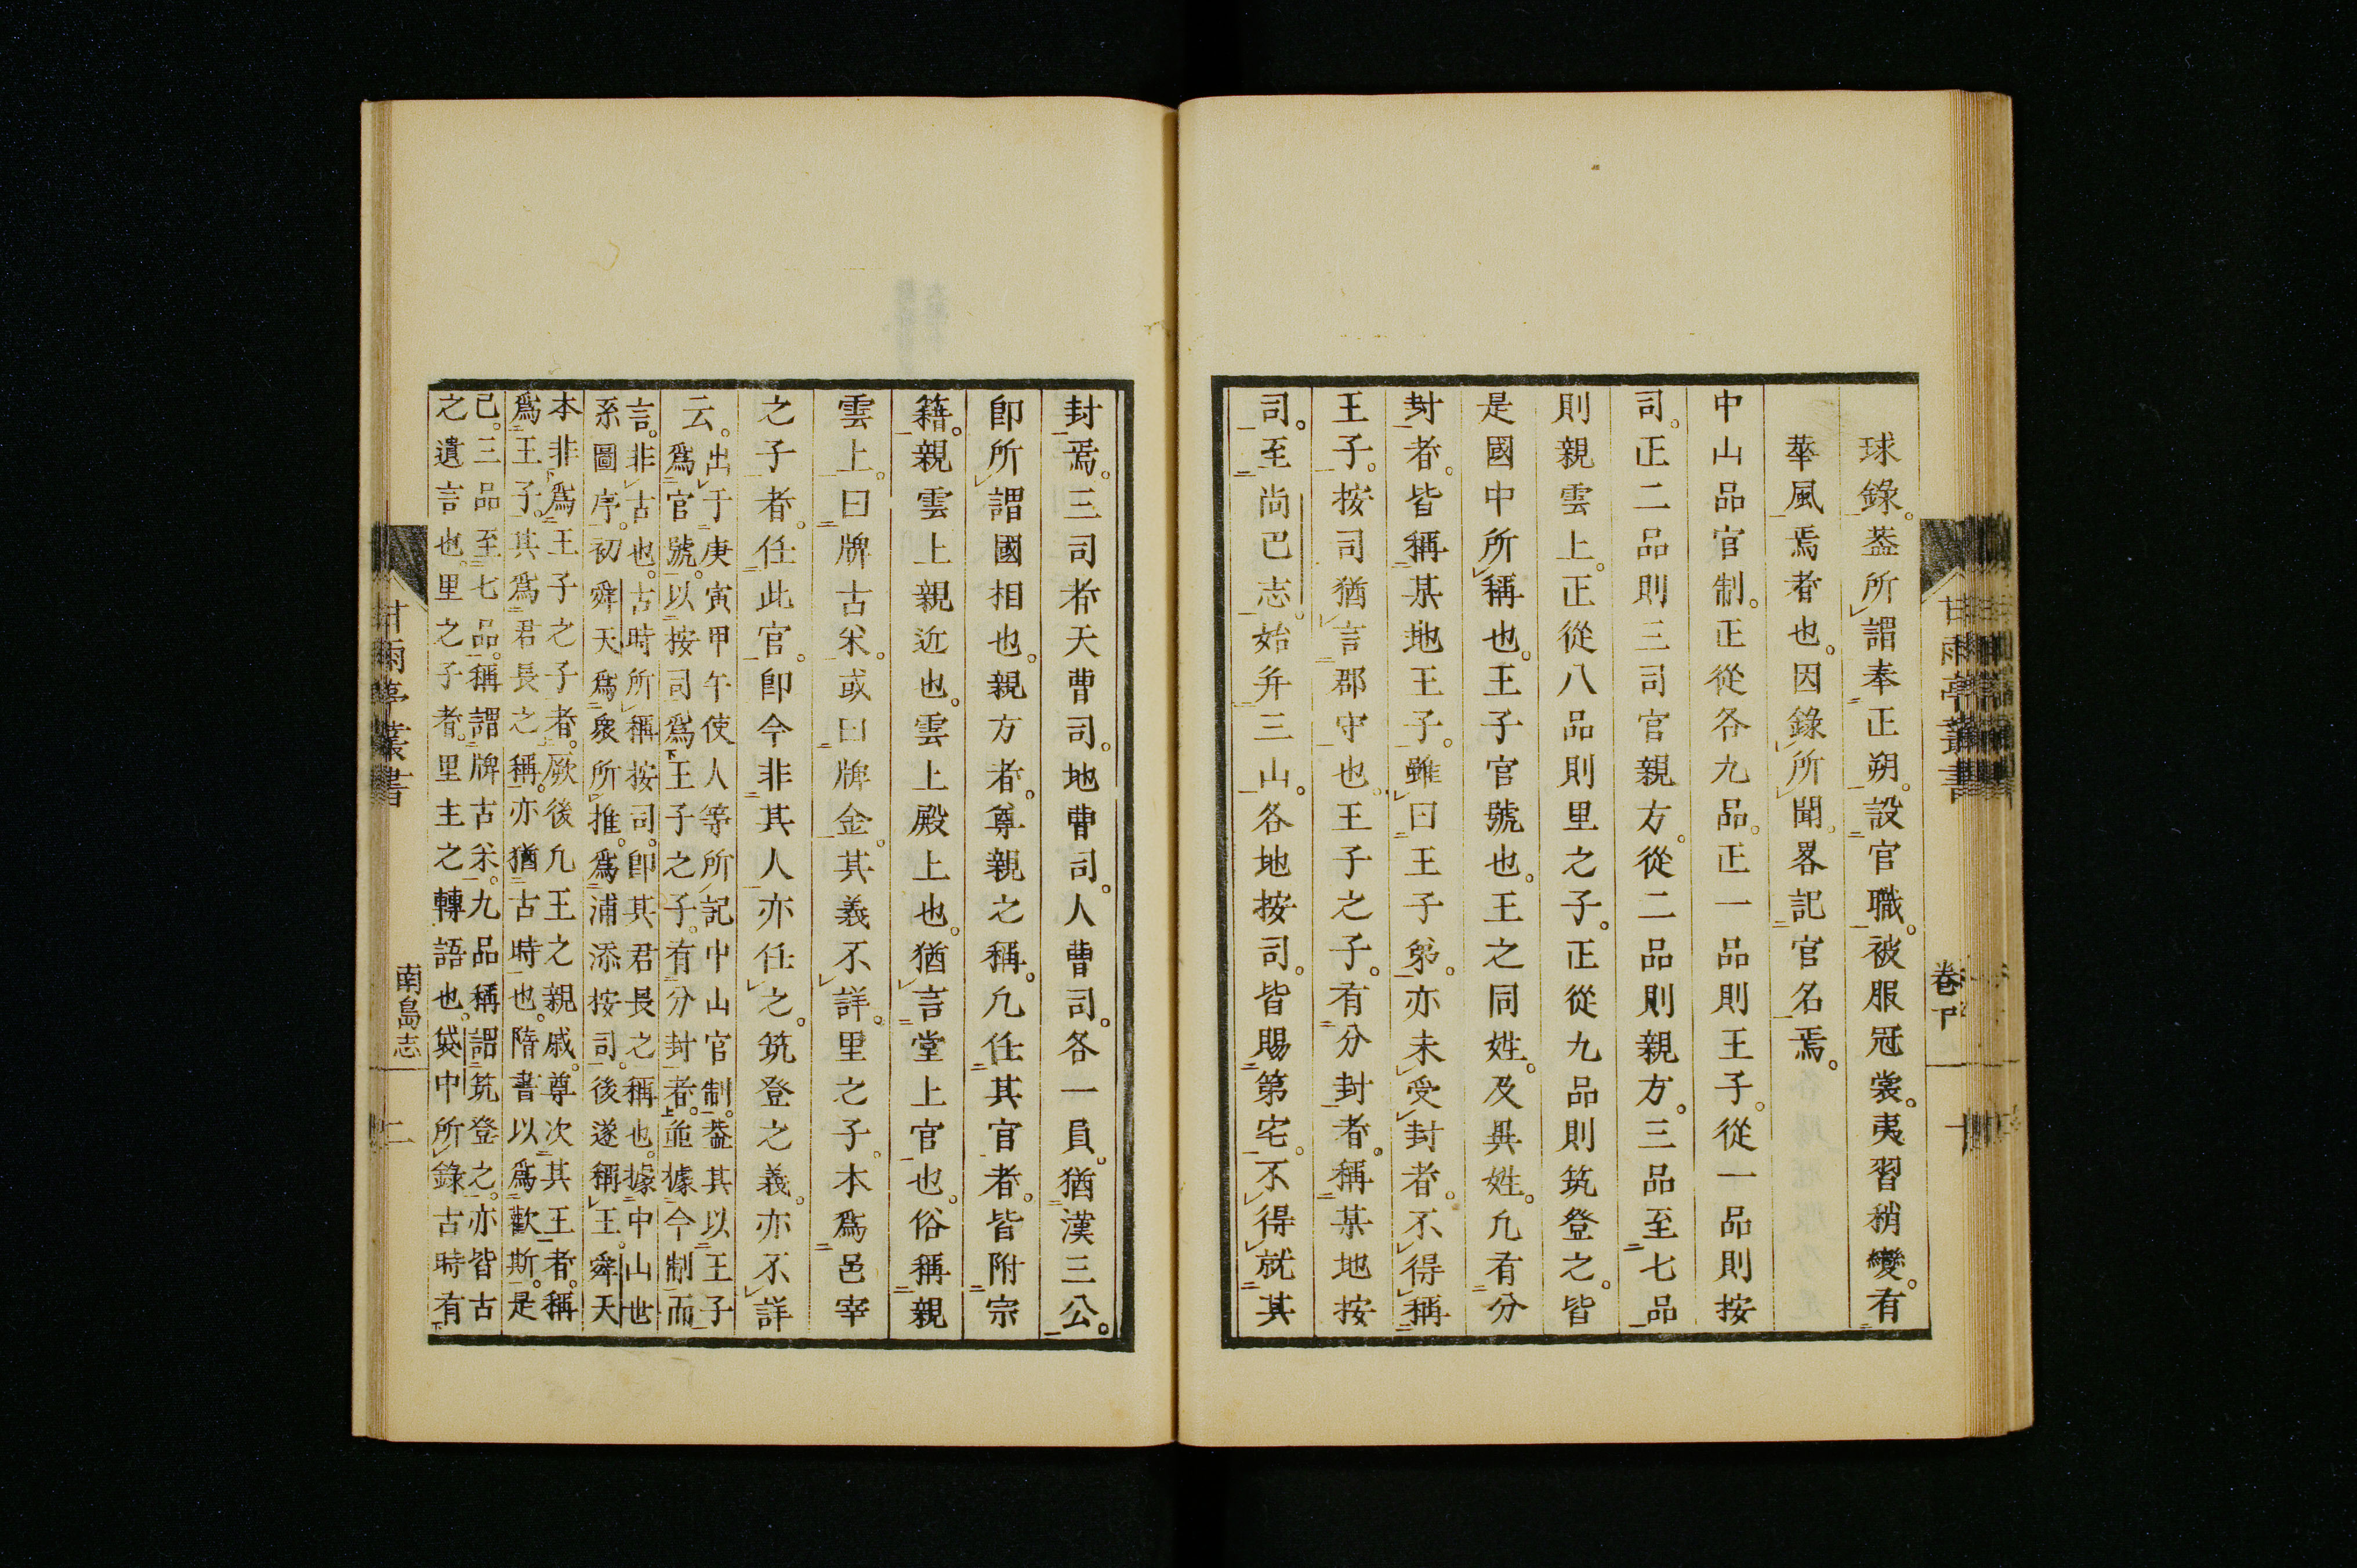 球錄。葢所謂奉正朔。設官職。被服冠裳。夷習稍變。有
華風焉者也。因錄所聞。畧記官名焉。
中山品官制。正從各九品。正一品則王子。從一品則按
司。正二品則三司官親方。從二品則親方。三品至七品
則親雲上。正從八品則里之子。正從九品則筑登之。皆
是國中所稱也。王子官號也。王之同姓。及異姓。凢有分
封者。皆稱某地王子。雖曰王子弟。亦未受封者。不得稱
王子。按司猶言郡守也。王子之子。有分封者。稱某地按
司。至尚巴志。始并三山。各地按司。皆賜第宅。不得就其
甘雨亭叢書
卷下
封焉。三司者天曹司。地曹司。人曹司。各一員。猶漢三公。
卽所謂國相也。親方者。尊親之稱。凢任其官者。皆附宗
籍。親雲上親近也。雲上殿上也。猶言堂上官也。俗稱親
雲上。曰牌古米。或曰牌金。其義不詳。里之子。本爲邑宰
之子者。任此官。卽今非其人亦任之。筑登之義。亦不詳
云。出于庚寅甲午使人等所記中山官制。葢其以王子
爲官號。以按司爲王子之子。有分封者。並據今制而
言。非古也。古時所稱按司。卽其君長之稱也。據中山世
系圖序。初舜天爲衆所推。爲浦添按司。後遂稱王。舜天
本非爲王子之子者。厥後凢王之親戚。尊次其王者。稱
爲王子。其爲君長之稱。亦猶古時也。隋書以爲歡斯。是
已。三品至七品。稱謂牌古米。九品稱謂筑登之。亦皆古
之遺言也。里之子者。里主之轉語也。袋中所錄古時有
甘雨亭叢書
南島志
二